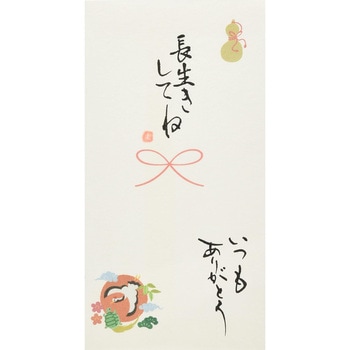 長生き
してね
いつも
ありがとう